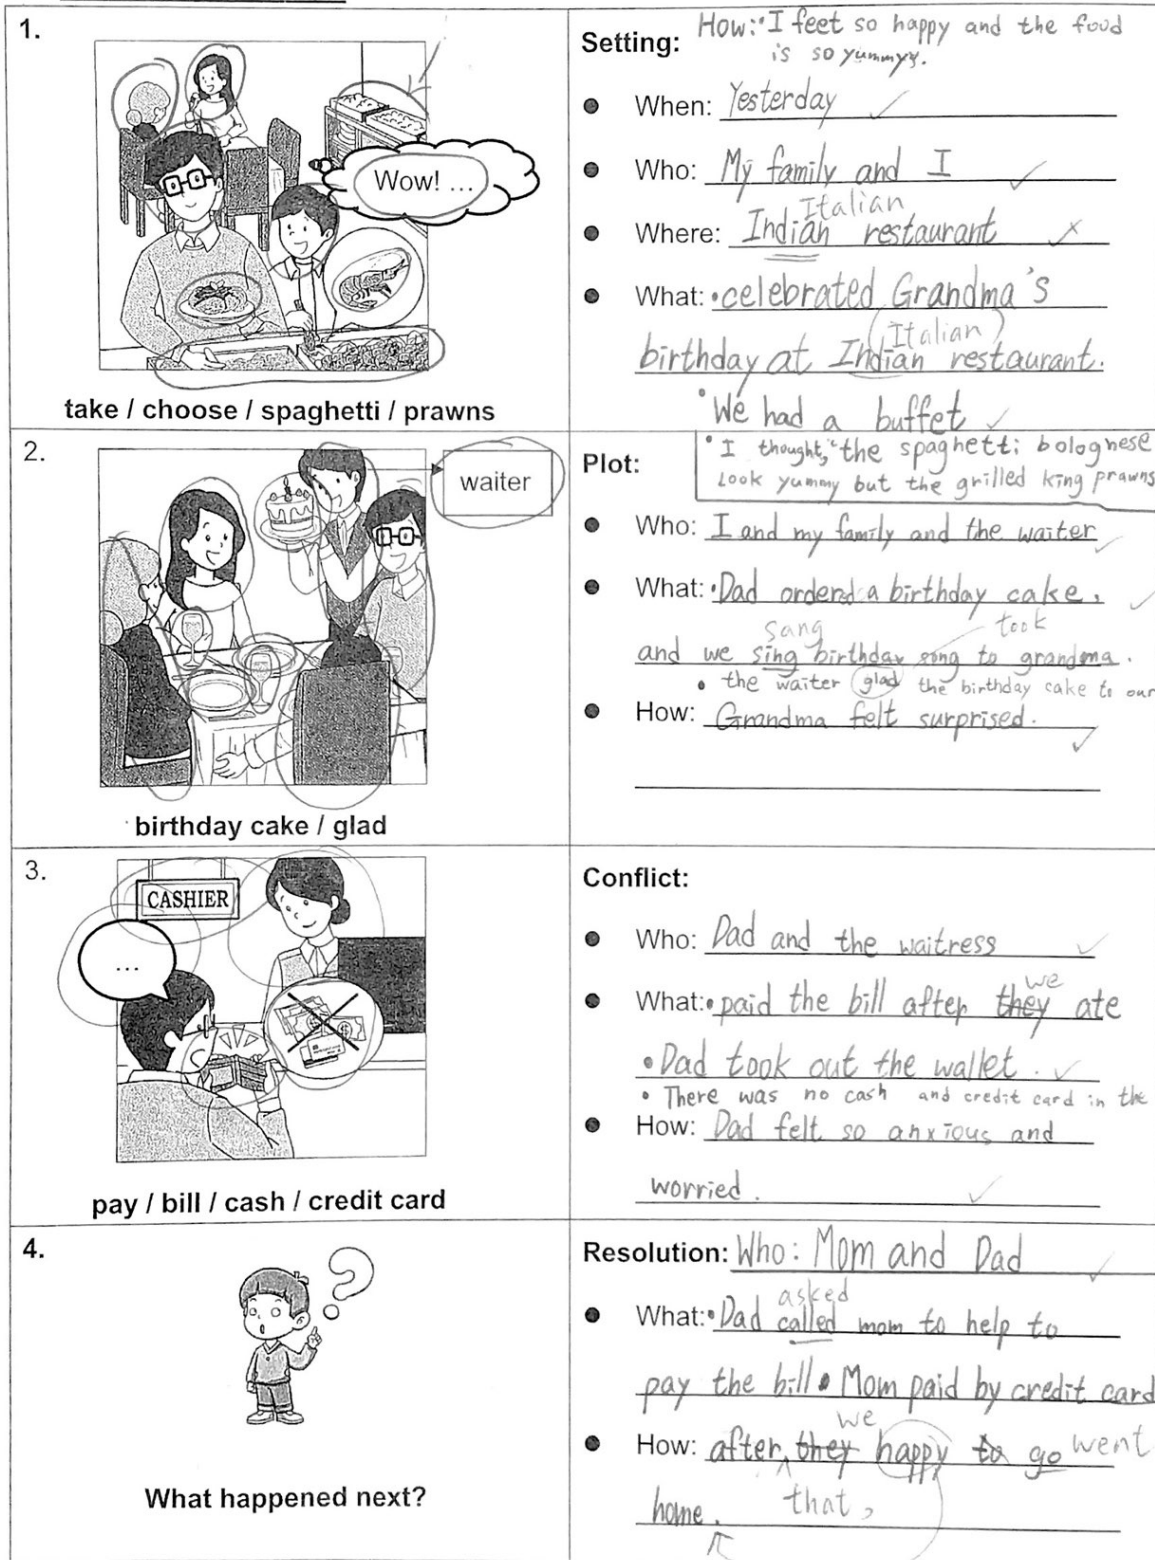 1.
Wow! ...
take / choose / spaghetti / prawns
Setting:
How: • I feet so happy and the food
is so yummyy.
When: Yesterday
Who: My family and I
Italian
Where: Indian restaurant
What: • celebrated Grandma's
(Italian)
birthday at Indian restaurant.
• We had a buffet
2.
waiter
birthday cake / glad
Plot:
• I thought, "the spaghetti bolognese
look yummy but the grilled king prawns
Who: I and my family and the waiter
What: • Dad ordered a birthday cake,
sang took
and we sing birthday song to grandma.
• the waiter glad the birthday cake to our
How: Grandma felt surprised.
3.
CASHIER
...
pay / bill / cash / credit card
Conflict:
Who: Dad and the waitress
we
What: • paid the bill after they ate
• Dad took out the wallet.
• There was no cash and credit card in the
How: Dad felt so anxious and
worried.
4.
?
What happened next?
Resolution: Who: Mom and Dad
asked
What: • Dad called mom to help to
pay the bill • Mom paid by credit card
we
How: after they happy to go went
home. that,